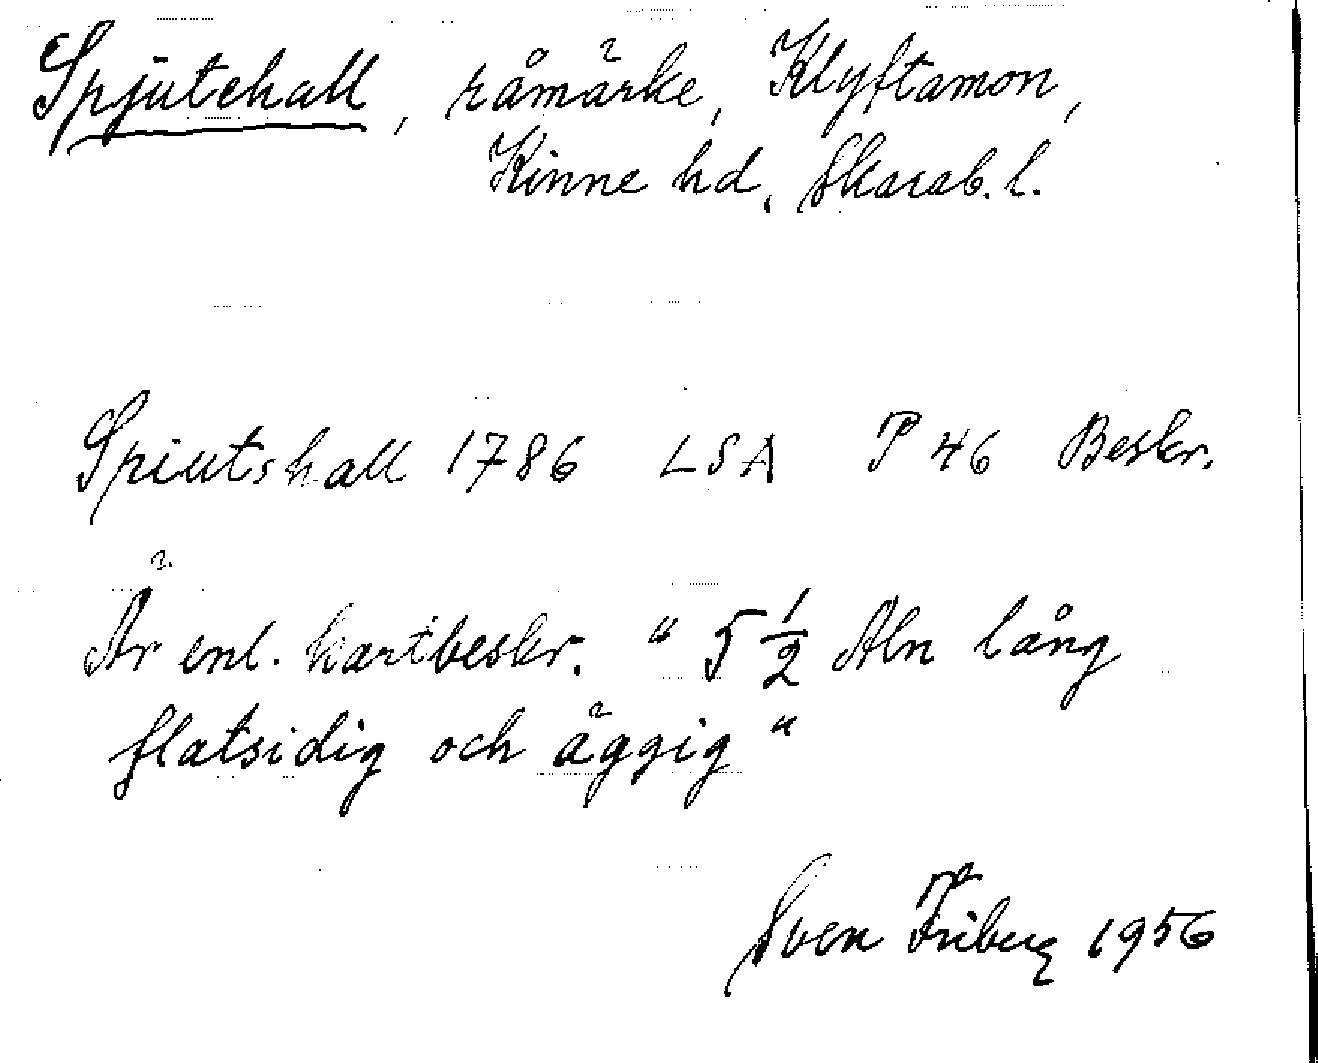 Spjutehall, råmärke, Klyftamon,
Kinne hd, Skarab. l.
Spiutshall 1786 LSA P 46 Beskr.
Är enl. kartbeskr. "5 1/2 Aln lång
flatsidig och äggig"
Sven Friberg 1956